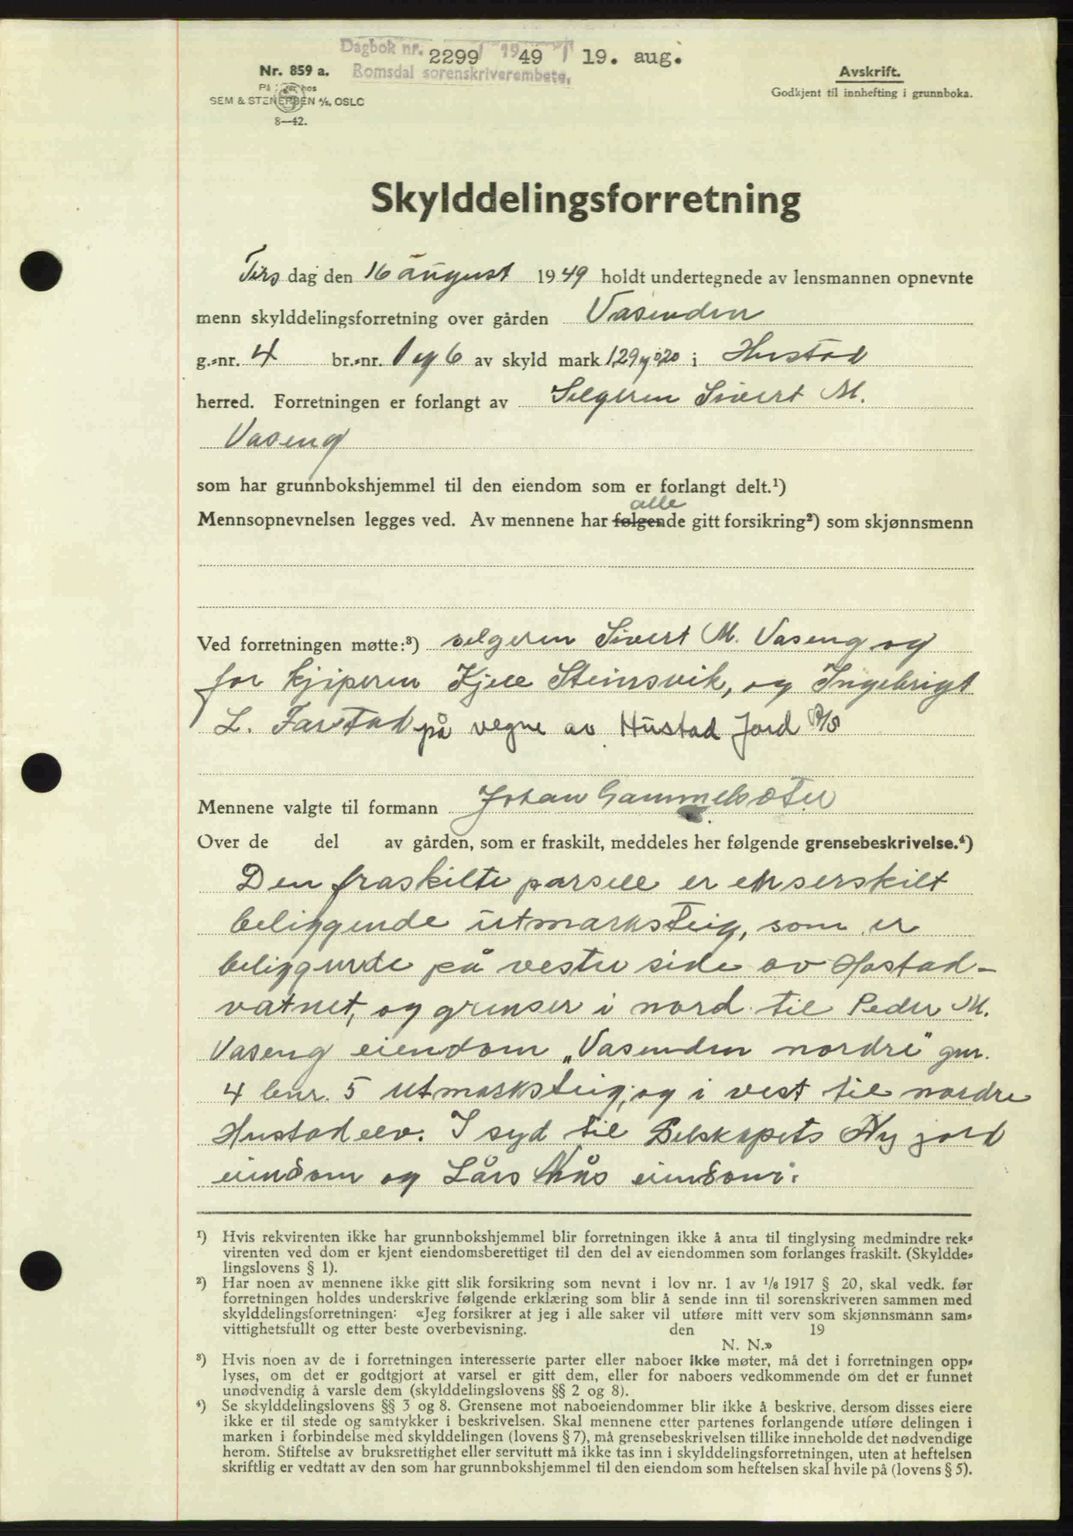 Dagbok nr. 2299 / 1949 19. aug.
Romsdal sorenskriverembete.
Nr. 859 a.
SEM & STENERSEN A/S, OSLO
8—42.
Avskrift.
Godkjent til innhefting i grunnboka.
Skylddelingsforretning
Tirsdag den 16 august 1949 holdt undertegnede av lensmannen opnevnte
menn skylddelingsforretning over gården Vasenden
g.-nr. 4 br.-nr. 1 og 6 av skyld mark 1,29 og 0,20 i Hustad
herred. Forretningen er forlangt av Selgeren Sivert M.
Vaseng
som har grunnbokshjemmel til den eiendom som er forlangt delt.¹)
alle
Mennsopnevnelsen legges ved. Av mennene har følgende gitt forsikring²) som skjønnsmenn
Ved forretningen møtte:³) selgeren Sivert M. Vaseng og
for kjøperen Kjell Steinsvik, og Ingebrigt
L. Farstad på vegne av Hustad Jord A/S
Mennene valgte til formann Johan Gammelsæter
Over de del av gården, som er fraskilt, meddeles her følgende grensebeskrivelse.⁴)
Den fraskilte parsell er en serskilt
beliggende utmarksteig, som er
beliggende på vestre side av Hostad-
vatnet, og grenser i nord til Peder M.
Vaseng eiendom „Vasenden nordre" gnr.
4 bnr. 5 utmarksteig, og i vest til nordre
Hustadelv. I syd til Selskapets Ny jord
eiendom og Lars Ås eiendom.
¹) Hvis rekvirenten ikke har grunnbokshjemmel blir forretningen ikke å anta til tinglysing medmindre rek-
virenten ved dom er kjent eiendomsberettiget til den del av eiendommen som forlanges fraskilt. (Skyldde-
lingslovens § 1).
²) Har noen av mennene ikke gitt slik forsikring som nevnt i lov nr. 1 av 1/6 1917 § 20, skal vedk. før
forretningen holdes underskrive følgende erklæring som blir å sende inn til sorenskriveren sammen med
skylddelingsforretningen: «Jeg forsikrer at jeg i alle saker vil utføre mitt verv som skjønnsmann sam-
vittighetsfullt og etter beste overbevisning. den 19
N. N.»
³) Hvis noen av de i forretningen interesserte parter eller naboer ikke møter, må det i forretningen opp-
lyses, om det er godtgjort at varsel er gitt dem, eller for naboers vedkommende om det er funnet
unødvendig å varsle dem (skylddelingslovens §§ 2 og 8).
⁴) Se skylddelingslovens §§ 3 og 8. Grensene mot naboeiendommer blir ikke å beskrive, dersom disses eiere
ikke er til stede og samtykker i beskrivelsen. Skal mennene etter partenes forlangende utføre delingen i
marken i forbindelse med skylddelingen (lovens § 7), må grensebeskrivelsen tillike inneholde det nødvendige
herom. Stiftelse av bruksrettighet eller servitutt må ikke tas inn i skylddelingsforretningen, uten at heftelsen
skriftlig er vedtatt av den som har grunnbokshjemmel til den eiendom som heftelsen skal hvile på (lovens § 5).